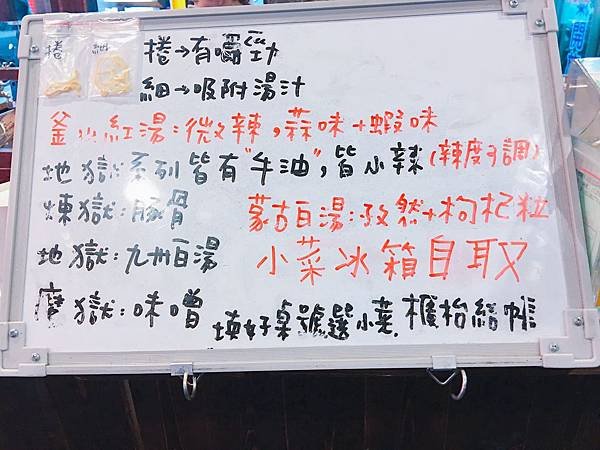 捲 細 捲→有嚼勁
細→吸附湯汁
釜山紅湯:微辣,蒜味+蝦味
地獄系列皆有"牛油",皆小辣(辣度可調)
煉獄:豚骨 蒙古白湯:孜然+枸杞粒
地獄:九州白湯 小菜冰箱自取
魔獄:味噌 填好桌號選小菜.櫃枱結帳